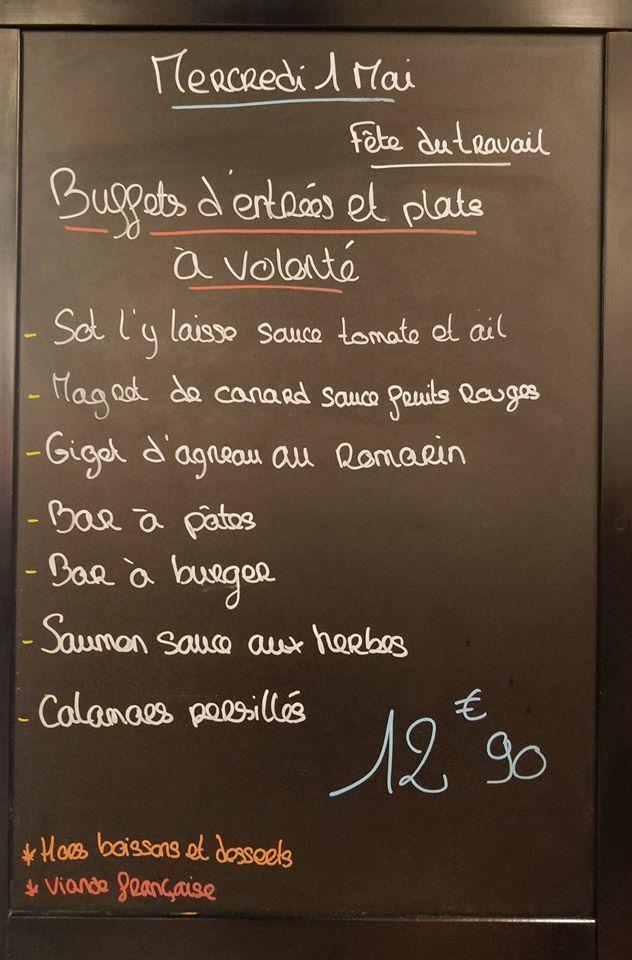 Mercredi 1 Mai
Fête du travail
Buffets d'entrées et plats
à volonté
- Sot l'y laisse sauce tomate et ail
- Magret de canard sauce fruits rouges
- Gigot d'agneau au Romarin
- Bar à pâtes
- Bar à burger
- Saumon sauce aux herbes
- Calamars persillés
12€90
* Hors boissons et desserts
* Viande française